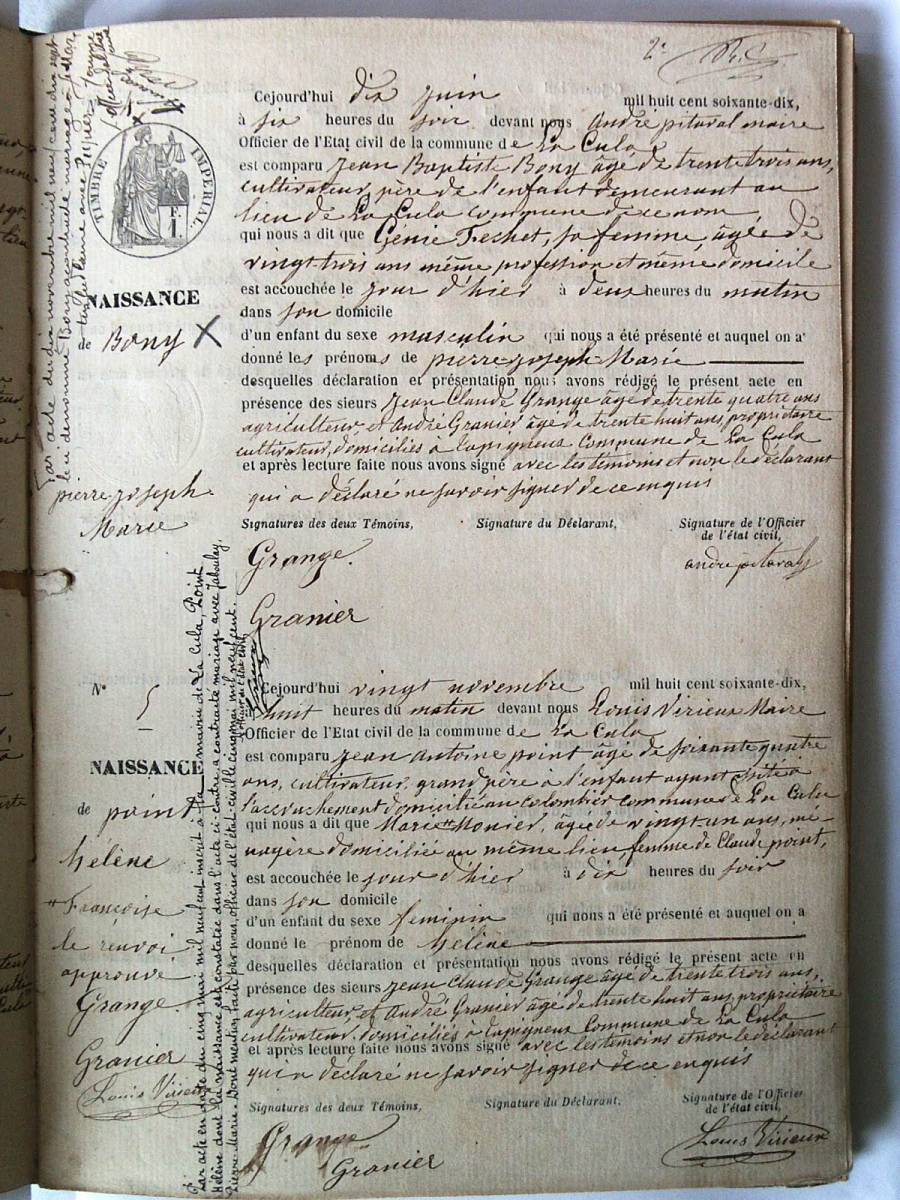 2e
TIMBRE IMPÉRIAL.
F. 1.
Par acte du dix novembre mil neuf cent dix sept
le dénommé Bony a contracté mariage à
avec
NAISSANCE
de Bony X
pierre joseph
Marie
Cejourd'hui dix juin mil huit cent soixante-dix,
à six heures du soir devant nous André pitaval maire
Officier de l'Etat civil de la commune de La Cula
est comparu Jean Baptiste Bony âgé de trente trois ans,
cultivateur, père de l'enfant demeurant au
lieu de La Cula commune de ce nom,
qui nous a dit que Génie Fechet, sa femme, âgée de
vingt trois ans même profession et même domicile
est accouchée le jour d'hier à deux heures du matin
dans son domicile
d'un enfant du sexe masculin qui nous a été présenté et auquel on a
donné les prénoms de pierre joseph Marie
desquelles déclaration et présentation nous avons rédigé le présent acte en
présence des sieurs Jean Claude Grange âgé de trente quatre ans
agriculteur, et André Granier âgé de trente huit ans, propriétaire
cultivateur, domiciliés à Lapigneux commune de La Cula
et après lecture faite nous avons signé avec les témoins et non le déclarant
qui a déclaré ne savoir signer de ce enquis
Signatures des deux Témoins, Signature du Déclarant, Signature de l'Officier
de l'état civil,
Grange.
andré pitaval
Granier
N° 5
NAISSANCE
de point
Hélène
" Françoise
le renvoi
approuvé
Grange.
Granier
Louis Virieux
Par acte en date du cinq mai mil neuf cent inscrit à la mairie de La Cula, Point
Hélène dont la naissance est constatée dans l'acte ci-contre, a contracté mariage avec Jaboulay
Pierre-Marie. Dont mention faite par nous officier de l'état-civil le cinq mai mil neuf cent.
L'officier de l'état civil,
Cejourd'hui vingt novembre mil huit cent soixante-dix,
à huit heures du matin devant nous Louis Virieux Maire
Officier de l'Etat civil de la commune de La Cula
est comparu Jean Antoine point âgé de soixante quatre
ans, cultivateur, grand père à l'enfant ayant assité à
l'accouchement domicilié au colombier commune de La Cula
qui nous a dit que Marie " Monier, âgée de vingt un ans, mé-
nagère domiciliée au même lieu femme de Claude point,
est accouchée le jour d'hier à dix heures du soir
dans son domicile
d'un enfant du sexe feminin qui nous a été présenté et auquel on a
donné le prénom de hélène
desquelles déclaration et présentation nous avons rédigé le présent acte en
présence des sieurs Jean Claude Grange âgé de trente trois ans,
agriculteur, et André Granier âgé de trente huit ans, propriétaire
cultivateur, domiciliés à Lapigneux Commune de La Cula
et après lecture faite nous avons signé avec les témoins et non le déclarant
qui a déclaré ne savoir signer de ce enquis
Signatures des deux Témoins, Signature du Déclarant, Signature de l'Officier
de l'état civil,
Grange
Granier
Louis Virieux